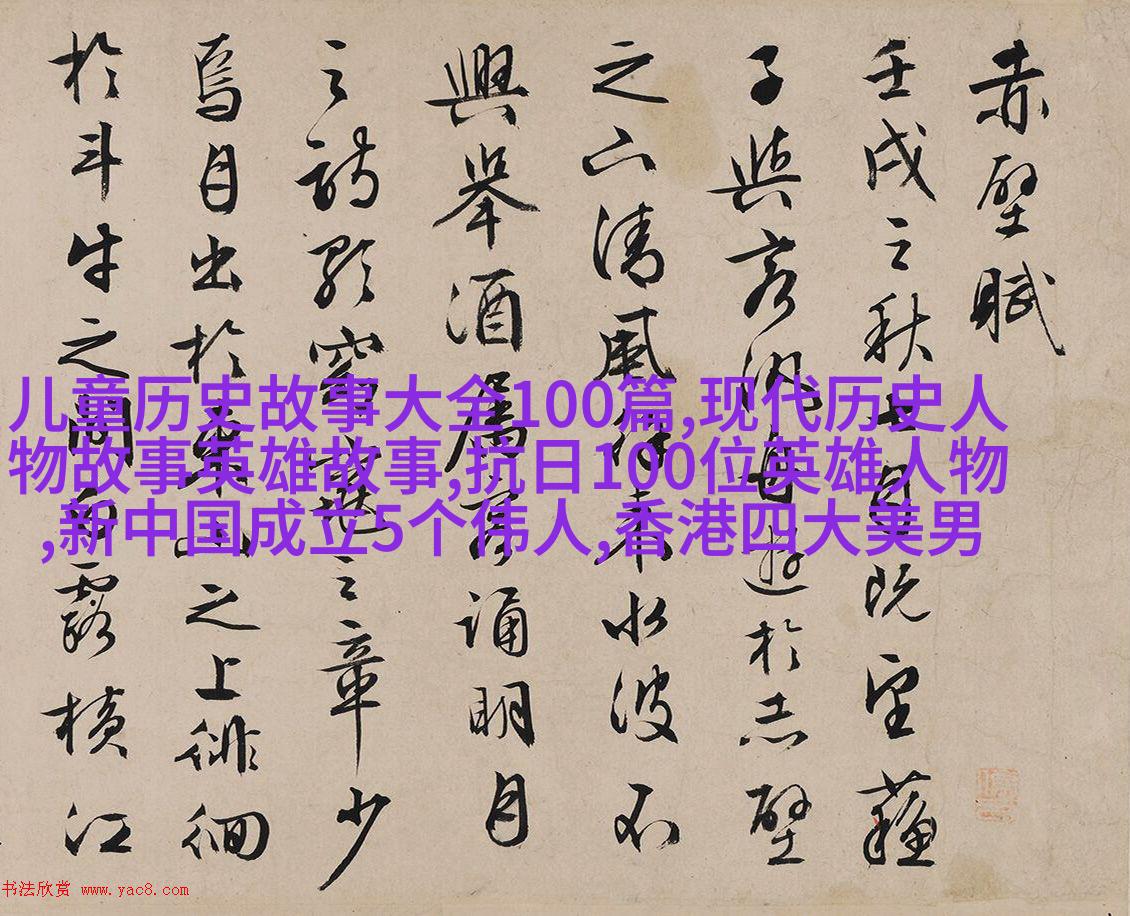 赤壁賦
壬戌之秋七月既望蘇
子與客汎舟遊於赤壁
之下清風徐來水波不
興舉酒屬客誦明月
之詩歌窈窕之章少
焉月出於東山之上徘徊
於斗牛之間白露橫江
儿童历史故事大全100篇,现代历史人
物故事英雄故事,抗日100位英雄人物
,新中国成立5个伟人,香港四大美男
书法欣赏 www.yac8.com